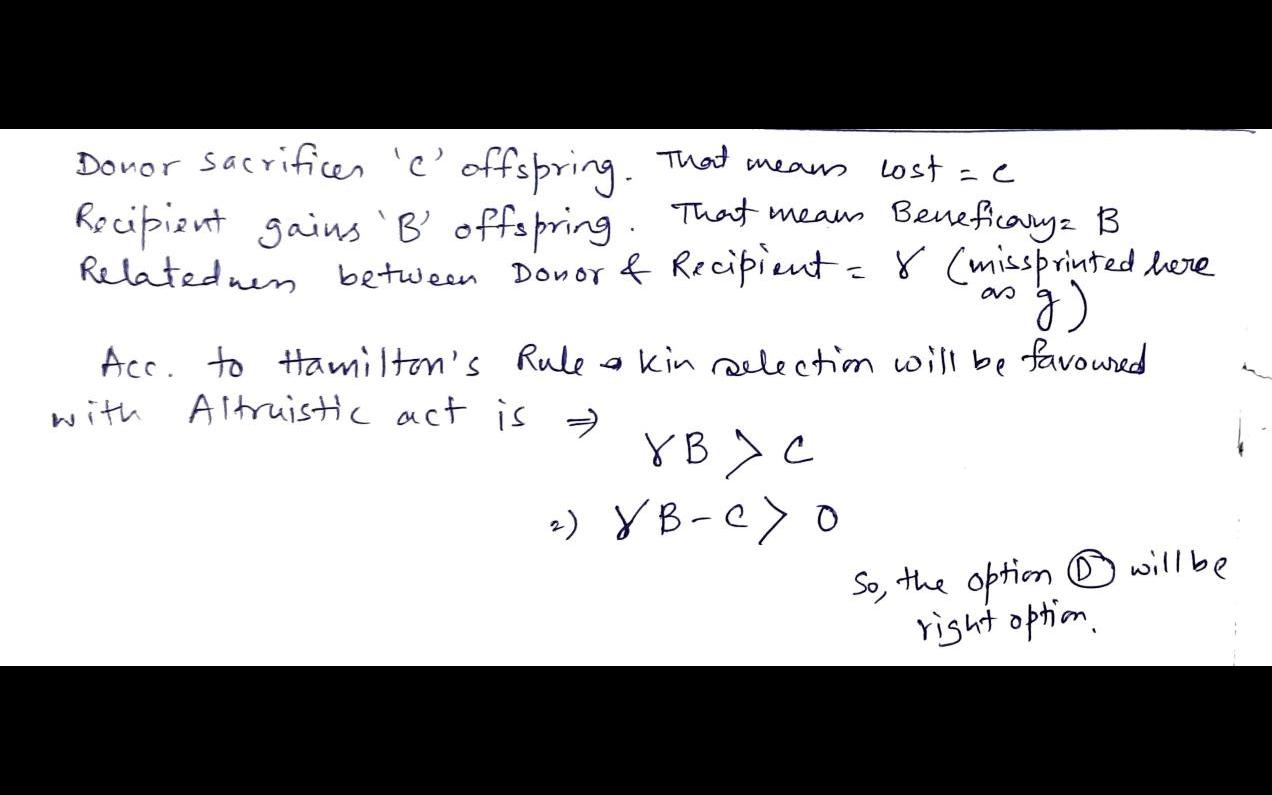 Donor sacrifices 'c' offspring. That means cost = c
Recipient gains 'B' offspring. That means Beneficary = B
Relatedness between Donor & Recipient = γ (missprinted here
as g)
Acc. to Hamilton's Rule → kin selection will be favoured
with Altruistic act is ⇒
γB > C
2) γB - C > 0
So, the option (D) will be
right option.